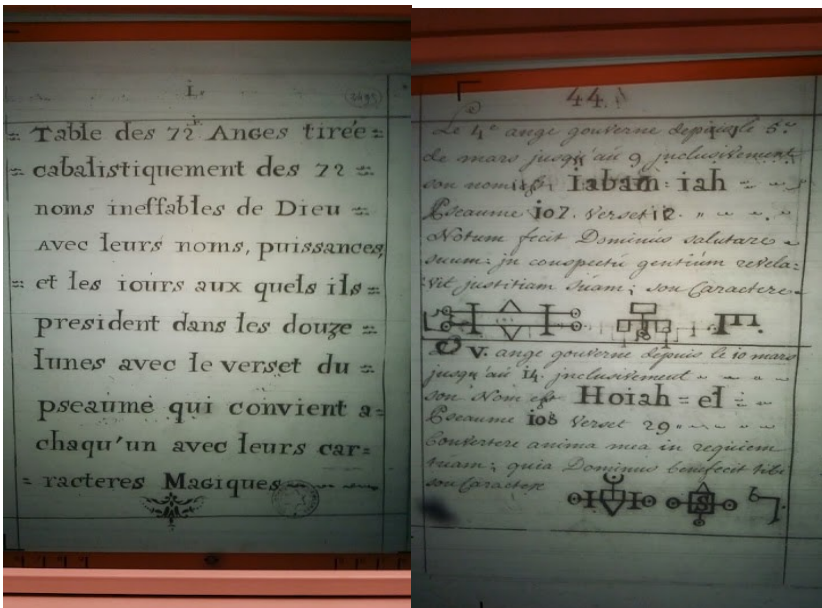 L.
2495
Table des 72 Anges tirée =
= cabalistiquement des 72 =
noms ineffables de Dieu =
Avec leurs noms, puissances,
= et les iours aux quels ils =
president dans les douze =
lunes avec le verset du =
pseaume qui convient a=
chaqu'un avec leurs car=
= racteres Magiques
44.
Le 4e ange gouverne depuis le 5.e
de mars jusqu'au 9 jnclusivement
son nom est iabam = iah
Pseaume 107. Verset 12.
Notum fecit Dominus salutare
suum: jn conspectu gentium revela=
vit justitiam suam; son Caractere
V. ange gouverne depuis le 10 mars
jusqu'au 14. jnclusivement
son Nom est Hoiah = el
Pseaume 108 Verset 29
Convertere anima mea in requiem
tuam; quia Dominus benefecit tibi
son Caractere